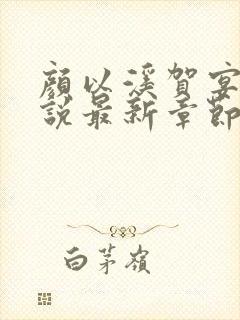 顔以溪賀宴
説最新章節
白茅嶺